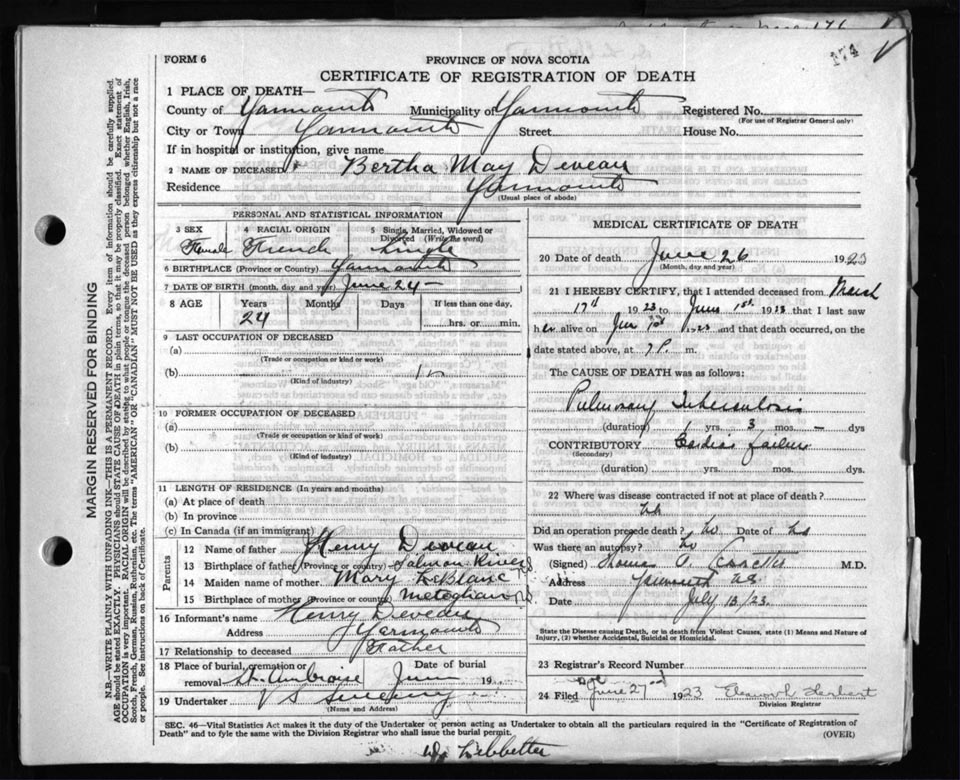 174
FORM 6
PROVINCE OF NOVA SCOTIA
CERTIFICATE OF REGISTRATION OF DEATH
1 PLACE OF DEATH—
County of Yarmouth Municipality of Yarmouth Registered No.
(For use of Registrar General only)
City or Town Yarmouth Street House No.
If in hospital or institution, give name
2 NAME OF DECEASED Bertha May Deveau
Residence Yarmouth
(Usual place of abode)
PERSONAL AND STATISTICAL INFORMATION
3 SEX 4 RACIAL ORIGIN 5 Single, Married, Widowed or Divorced (Write the word)
Female French Single
6 BIRTHPLACE (Province or Country) Yarmouth
7 DATE OF BIRTH (month, day and year) June 24 —
8 AGE Years Months Days If less than one day,
24 hrs. or min.
9 LAST OCCUPATION OF DECEASED
(a)
(Trade or occupation or kind or work)
(b)
(Kind of industry)
10 FORMER OCCUPATION OF DECEASED
(a)
(Trade or occupation or kind of work)
(b)
(Kind of industry)
11 LENGTH OF RESIDENCE (In years and months)
(a) At place of death
(b) In province
(c) In Canada (if an immigrant)
Parents
12 Name of father Henry Deveau
13 Birthplace of father (Province or country) Salmon River
14 Maiden name of mother Mary LeBlanc
15 Birthplace of mother (Province or country) Meteghan
16 Informant's name Henry Deveau
Address Yarmouth
17 Relationship to deceased
18 Place of burial, cremation or removal St. Ambroise Date of burial June 19
19 Undertaker Sweeny
(Name and Address)
MEDICAL CERTIFICATE OF DEATH
20 Date of death June 26 1923
(Month, day and year)
21 I HEREBY CERTIFY, that I attended deceased from March
17th 1923 to June 1st 1923 that I last saw
her alive on Jun 1st 1923 and that death occurred, on the
date stated above, at 7 P. m.
The CAUSE OF DEATH was as follows:
Pulmonary Tuberculosis
(duration) 1 yrs. 3 mos. — dys
CONTRIBUTORY Cardiac failure
(Secondary)
(duration) yrs. mos. dys.
22 Where was disease contracted if not at place of death?
Did an operation precede death? No Date of
Was there an autopsy? No
(Signed) Thomas M.D.
Address Yarmouth N.S.
Date July 13/23.
State the Disease causing Death, or in death from Violent Causes, state (1) Means and Nature of Injury, (2) whether Accidental, Suicidal or Homicidal.
23 Registrar's Record Number
24 Filed June 27 1923 Herbert
Division Registrar
SEC. 46—Vital Statistics Act makes it the duty of the Undertaker or person acting as Undertaker to obtain all the particulars required in the "Certificate of Registration of
Death" and to fyle the same with the Division Registrar who shall issue the burial permit.
(OVER)
MARGIN RESERVED FOR BINDING
N.B.—WRITE PLAINLY WITH UNFADING INK—THIS IS A PERMANENT RECORD. Every item of information should be carefully supplied.
AGE should be stated EXACTLY. PHYSICIANS should STATE CAUSE OF DEATH in plain terms, so that it may be properly classified. Exact statement of
OCCUPATION is very important. RACIAL ORIGIN will be described by stating to what people or tongue the deceased person belonged whether English, Irish,
Scotch, French, German, Russian, Ruthenian, etc. The terms "AMERICAN" OR "CANADIAN" MUST NOT BE USED as they express citizenship but not a race
or people. See instructions on back of Certificate.